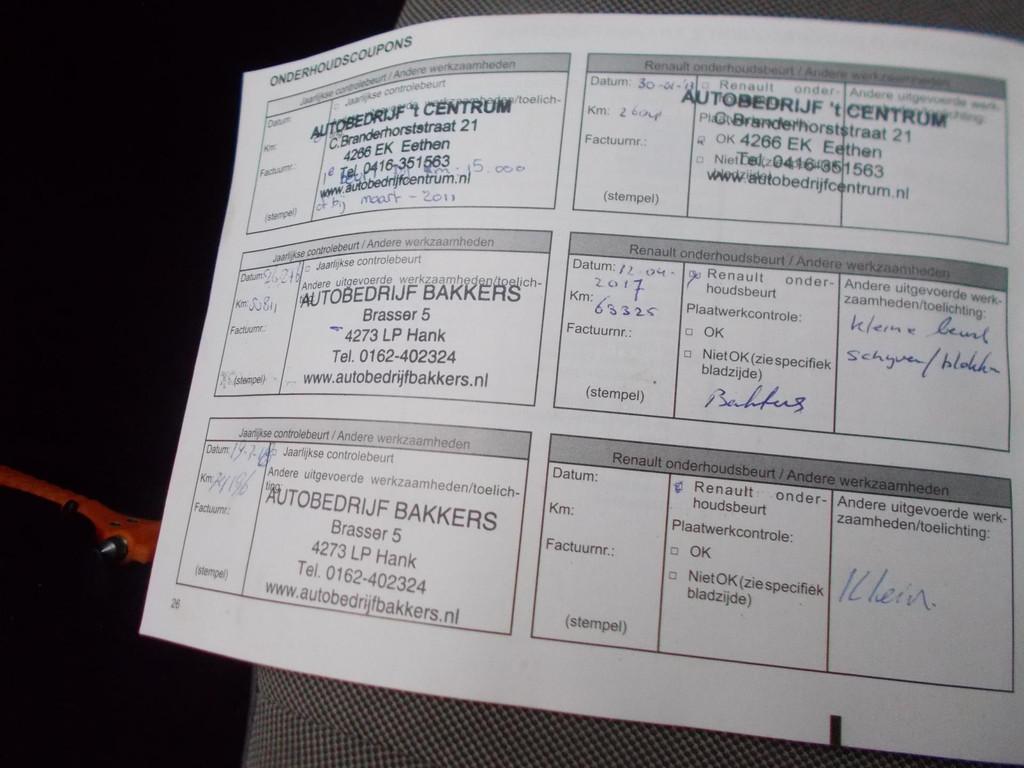 ONDERHOUDSCOUPONS
Jaarlijkse controlebeurt / Andere werkzaamheden
Datum:
Jaarlijkse controlebeurt
Km:
Factuurnr.:
(stempel)
AUTOBEDRIJF 't CENTRUM
C.Branderhorststraat 21
4266 EK Eethen
Tel. 0416-351563
www.autobedrijfcentrum.nl
1e km-15.000
of bij maart-2011
Renault onderhoudsbeurt / Andere werkzaamheden
Datum: 30-01-
Renault onder-
Andere uitgevoerde werk-
Km:
Factuurnr.:
(stempel)
OK
AUTOBEDRIJF 't CENTRUM
C.Branderhorststraat 21
4266 EK Eethen
Tel. 0416-351563
www.autobedrijfcentrum.nl
Jaarlijkse controlebeurt / Andere werkzaamheden
Datum:
Jaarlijkse controlebeurt
Km:
Andere uitgevoerde werkzaamheden/toelich-
ting:
Factuurnr.:
(stempel)
AUTOBEDRIJF BAKKERS
Brasser 5
4273 LP Hank
Tel. 0162-402324
www.autobedrijfbakkers.nl
Renault onderhoudsbeurt / Andere werkzaamheden
Datum: 12-04-
2017
Km: 63325
Factuurnr.:
(stempel)
Renault onder-
houdsbeurt
Plaatwerkcontrole:
OK
Niet OK (zie specifiek
bladzijde)
Bakkers
Andere uitgevoerde werk-
zaamheden/toelichting:
kleine beurt
schijven/blokken
Jaarlijkse controlebeurt / Andere werkzaamheden
Datum:
Jaarlijkse controlebeurt
Km:
Andere uitgevoerde werkzaamheden/toelich-
ting:
Factuurnr.:
(stempel)
AUTOBEDRIJF BAKKERS
Brasser 5
4273 LP Hank
Tel. 0162-402324
www.autobedrijfbakkers.nl
Renault onderhoudsbeurt / Andere werkzaamheden
Datum:
Km:
Factuurnr.:
(stempel)
Renault onder-
houdsbeurt
Plaatwerkcontrole:
OK
Niet OK (zie specifiek
bladzijde)
Andere uitgevoerde werk-
zaamheden/toelichting:
Klein.
26